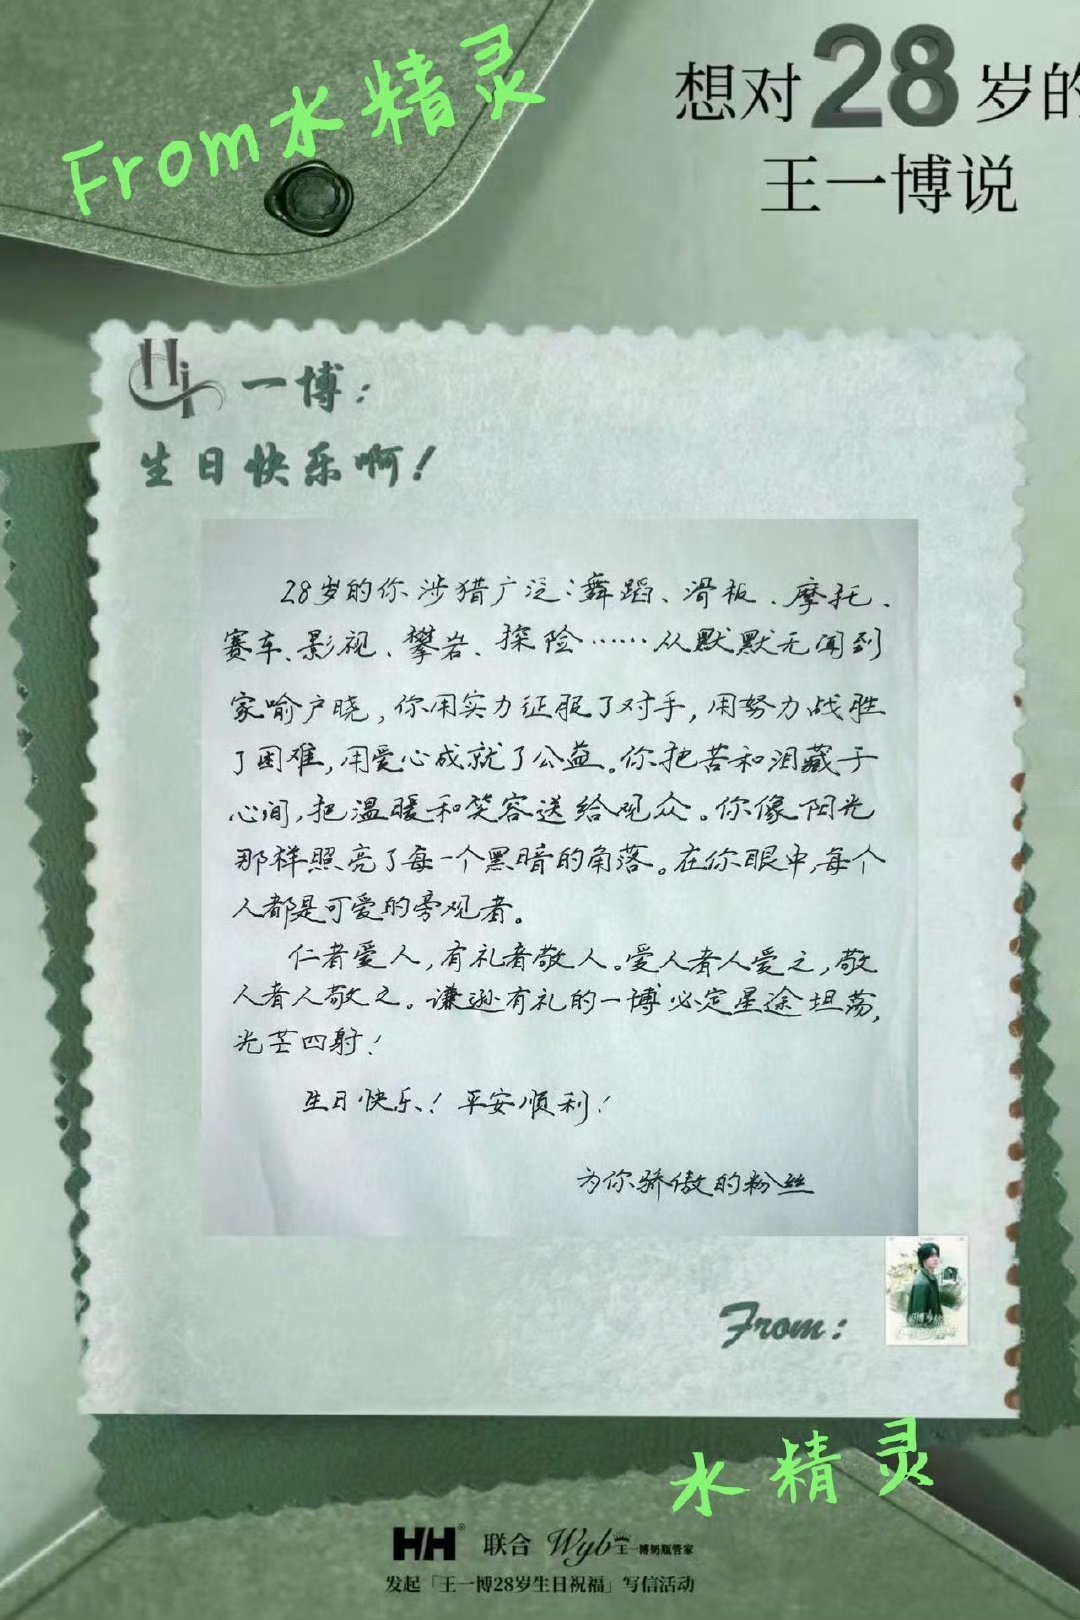 From水精灵
想对28岁的
王一博说
Hi 一博：
生日快乐啊！
28岁的你涉猎广泛：舞蹈、滑板、摩托、
赛车、影视、攀岩、探险……从默默无闻到
家喻户晓，你用实力征服了对手，用努力战胜
了困难，用爱心成就了公益。你把苦和泪藏于
心间，把温暖和笑容送给观众。你像阳光
那样照亮了每一个黑暗的角落。在你眼中，每个
人都是可爱的旁观者。
仁者爱人，有礼者敬人。爱人者人爱之，敬
人者人敬之。谦逊有礼的一博必定星途坦荡，
光芒四射！
生日快乐！平安顺利！
为你骄傲的粉丝
From：
水精灵
HH® 联合 Wyb王一博奶瓶管家
发起「王一博28岁生日祝福」写信活动